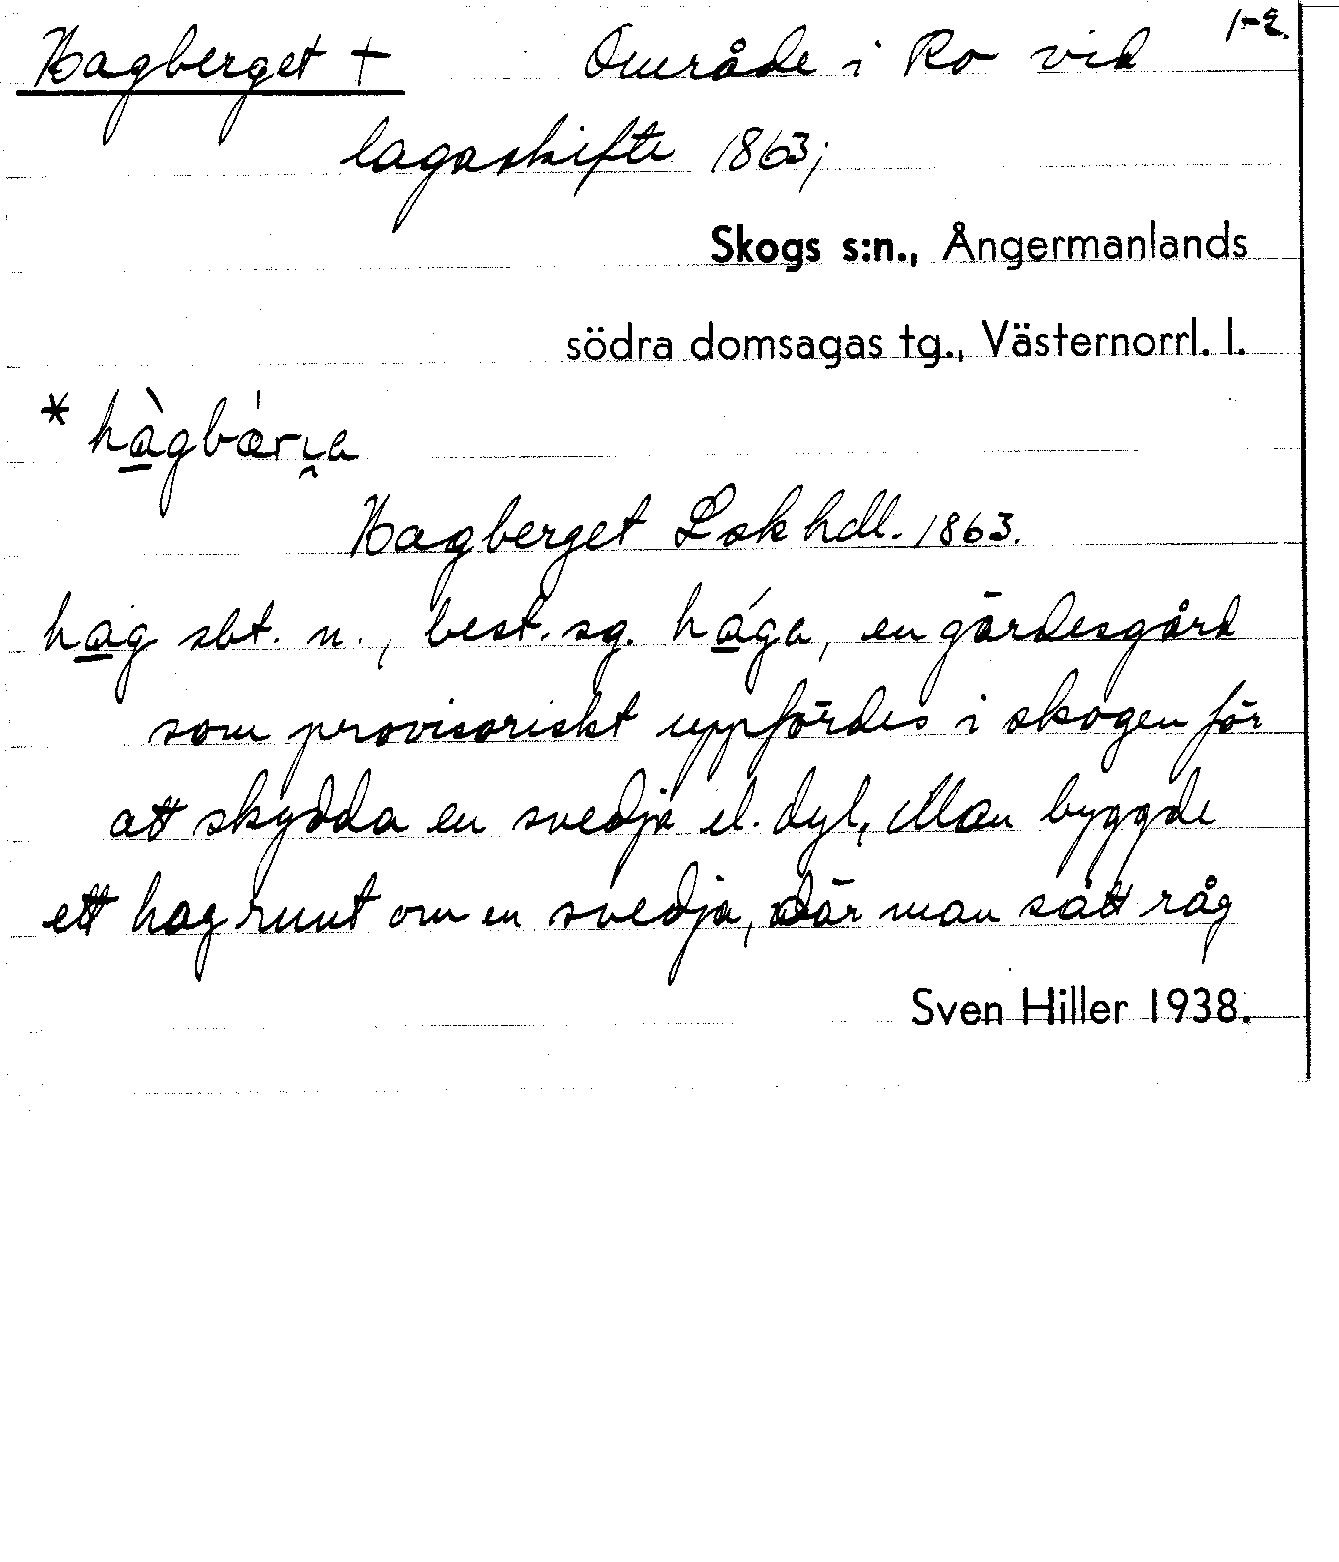 1-2.
Hagberget + Område i Ro vid
lagaskifte 1863;
Skogs s:n., Ångermanlands
södra domsagas tg., Västernorrl. l.
* hàgbærɪ̯a
Hagberget Lsk hdl. 1863.
hag sbt. n., best. sg. hága, en gärdesgård
som provisoriskt uppfördes i skogen för
att skydda en svedja el. dyl. Man byggde
ett hag runt om en svedja, där man sått råg
Sven Hiller 1938.